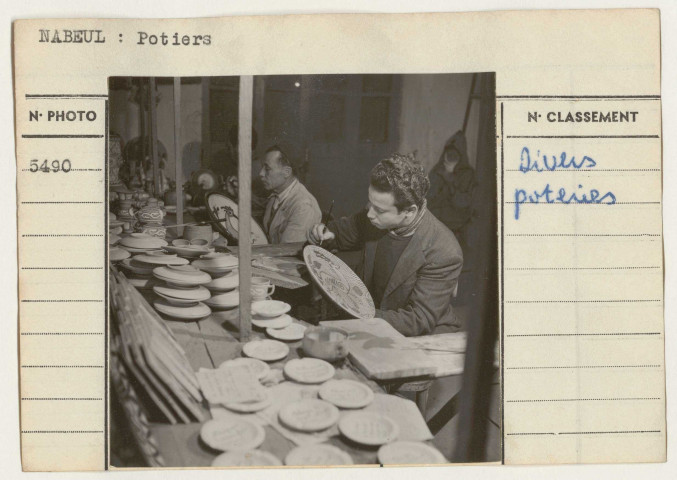 NABEUL : Potiers
N· PHOTO
N· CLASSEMENT
5490
Divers
poteries